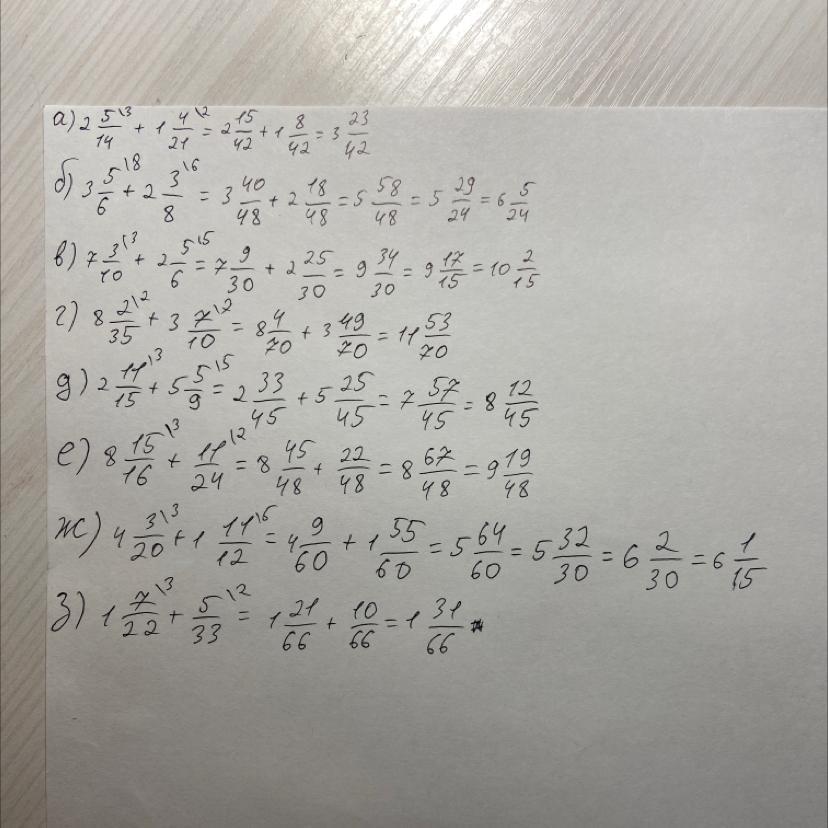 а) 2 5/14 \3 + 1 4/21 \2 = 2 15/42 + 1 8/42 = 3 23/42
б) 3 5/6 \8 + 2 3/8 \6 = 3 40/48 + 2 18/48 = 5 58/48 = 5 29/24 = 6 5/24
в) 7 3/10 \3 + 2 5/6 \5 = 7 9/30 + 2 25/30 = 9 34/30 = 9 17/15 = 10 2/15
г) 8 2/35 \2 + 3 7/10 \2 = 8 4/70 + 3 49/70 = 11 53/70
д) 2 11/15 \3 + 5 5/9 \5 = 2 33/45 + 5 25/45 = 7 57/45 = 8 12/45
е) 8 15/16 \3 + 11/24 \2 = 8 45/48 + 22/48 = 8 67/48 = 9 19/48
ж) 4 3/20 \3 + 1 11/12 \5 = 4 9/60 + 1 55/60 = 5 64/60 = 5 32/30 = 6 2/30 = 6 1/15
з) 1 7/22 \3 + 5/33 \2 = 1 21/66 + 10/66 = 1 31/66